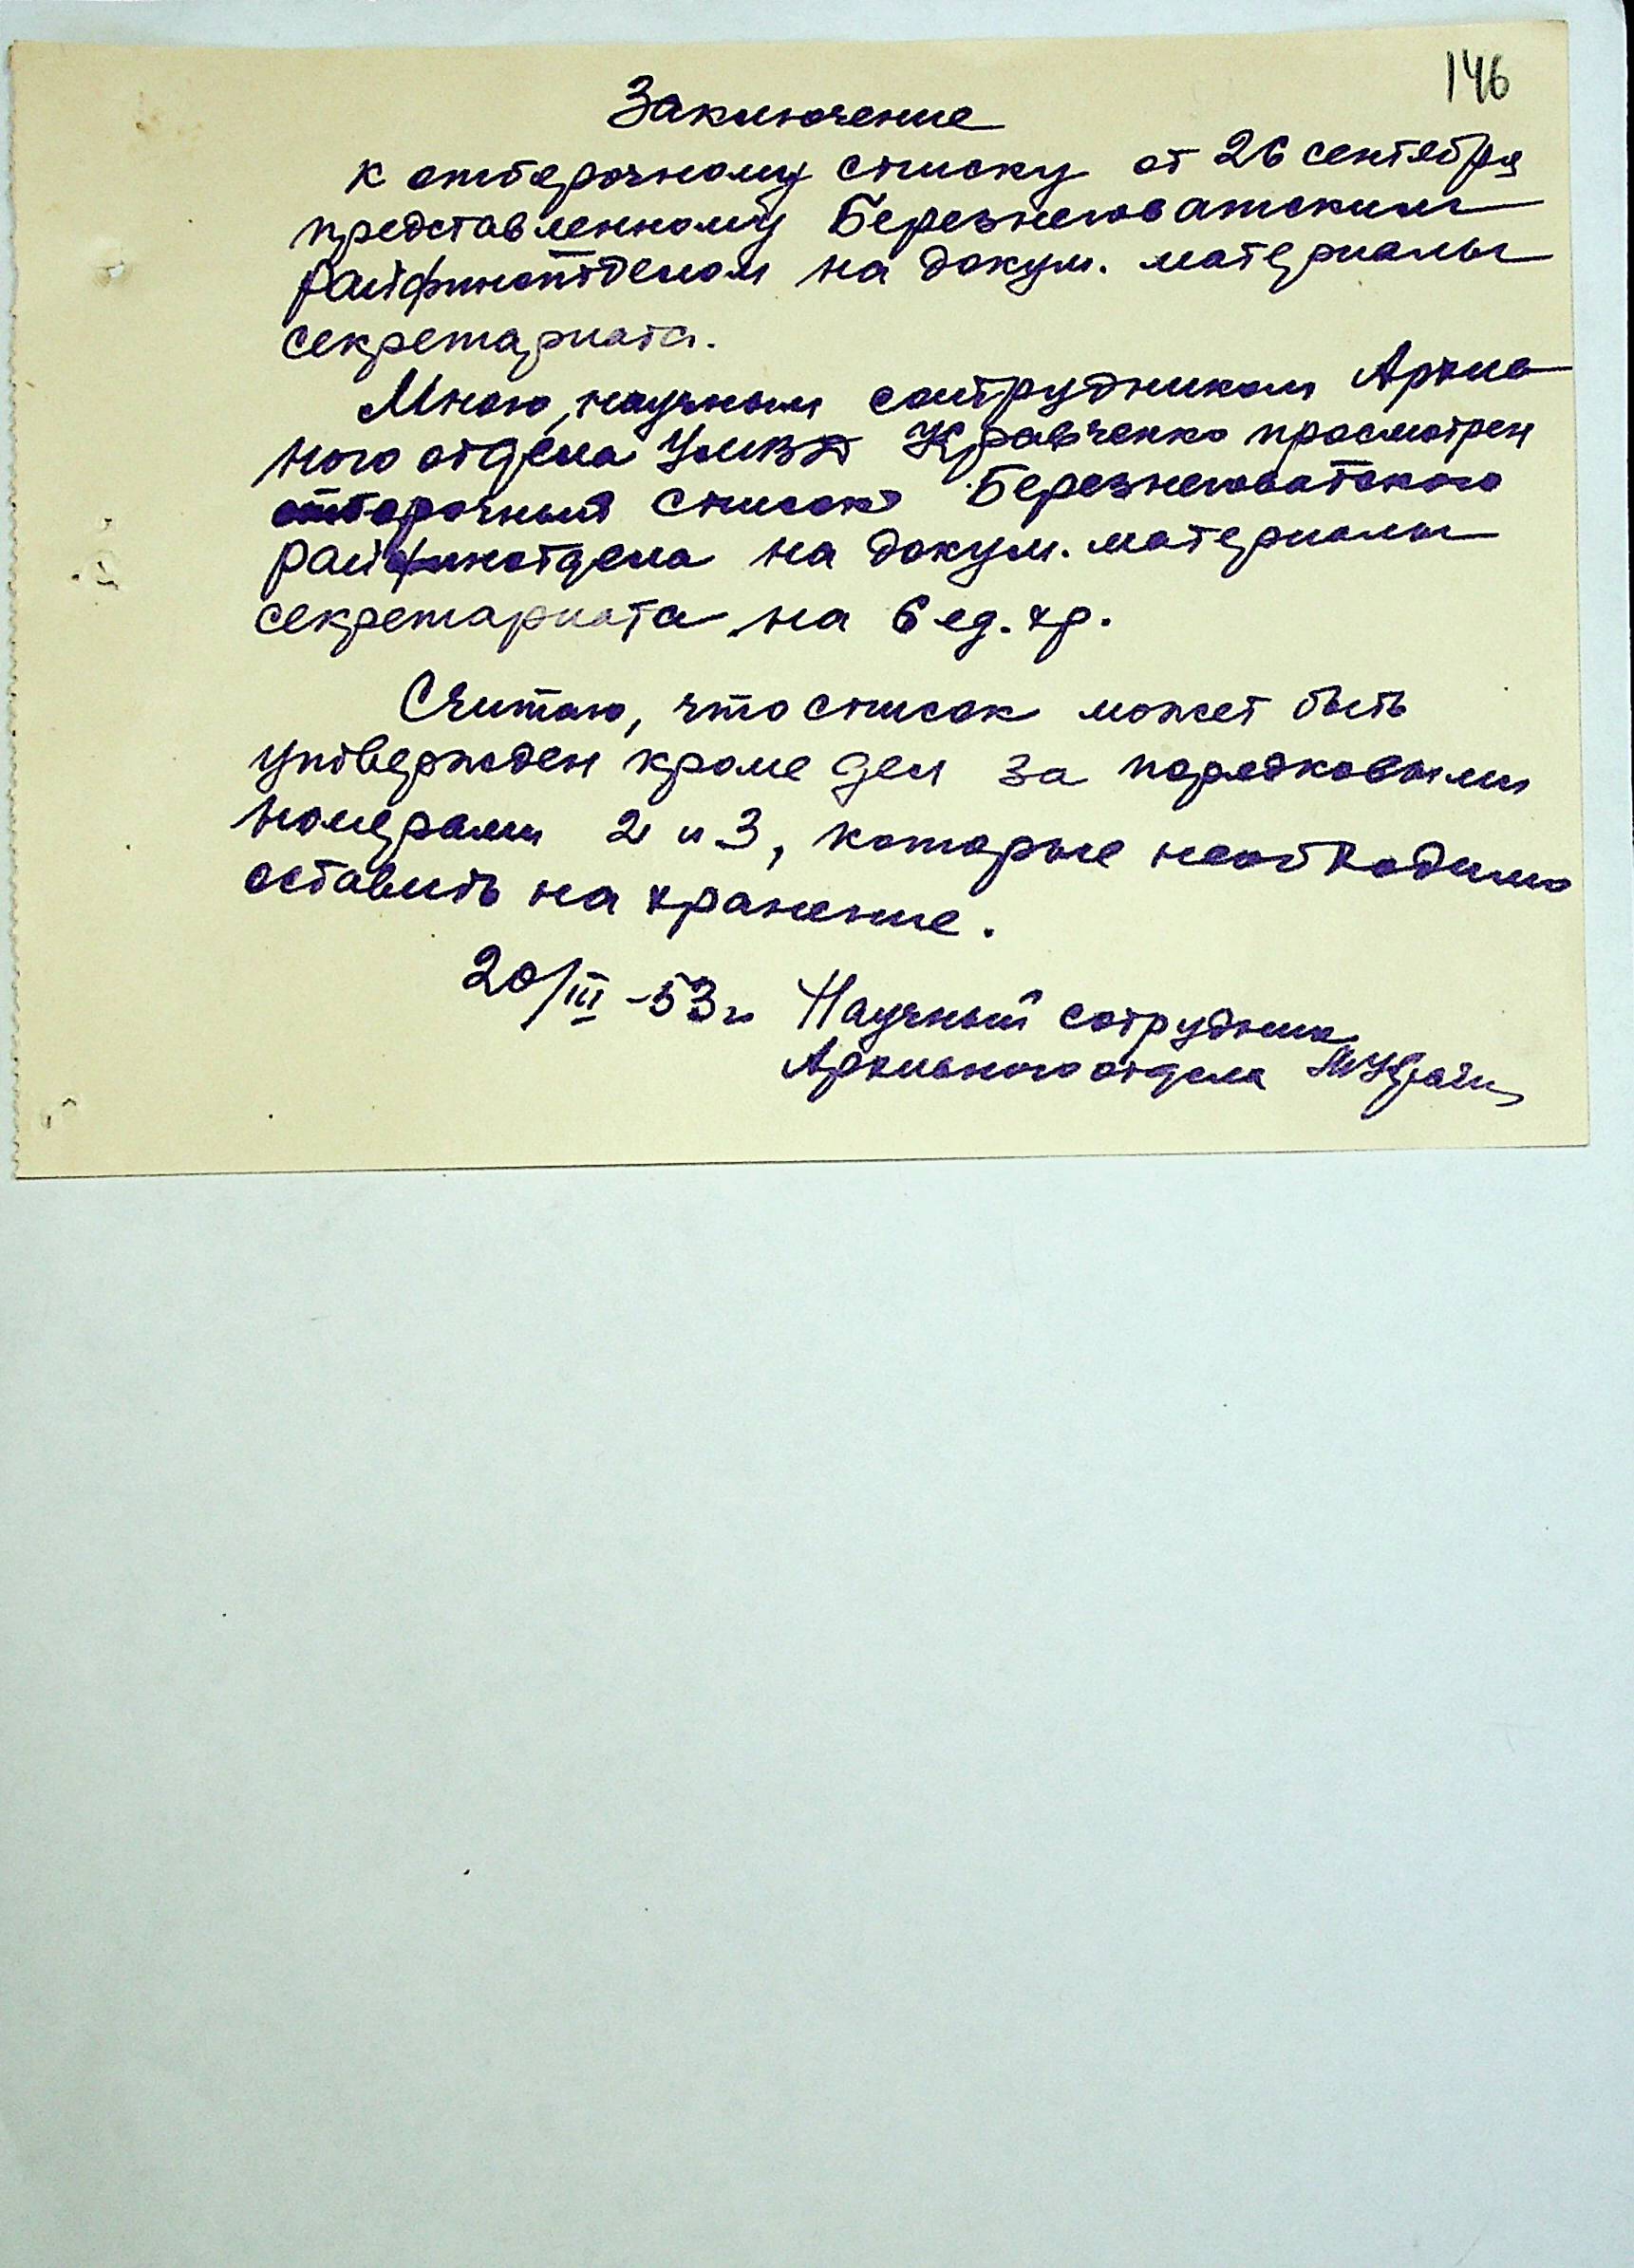 146
Заключение
к отборочному списку от 26 сентября
представленному Березнеговатским
райфинотделом на докум. материалы
секретариата.
Мною, научным сотрудником Архив
ного отдела УМВД Кравченко просмотрен
отборочный список Березнеговатского
райфинотдела на докум. материалы
секретариата на 6 ед. хр.
Считаю, что список может быть
утвержден кроме дел за порядковыми
номерами 2 и 3, которые необходимо
оставить на хранение.
20/III -53г. Научный сотрудник
Архивного отдела